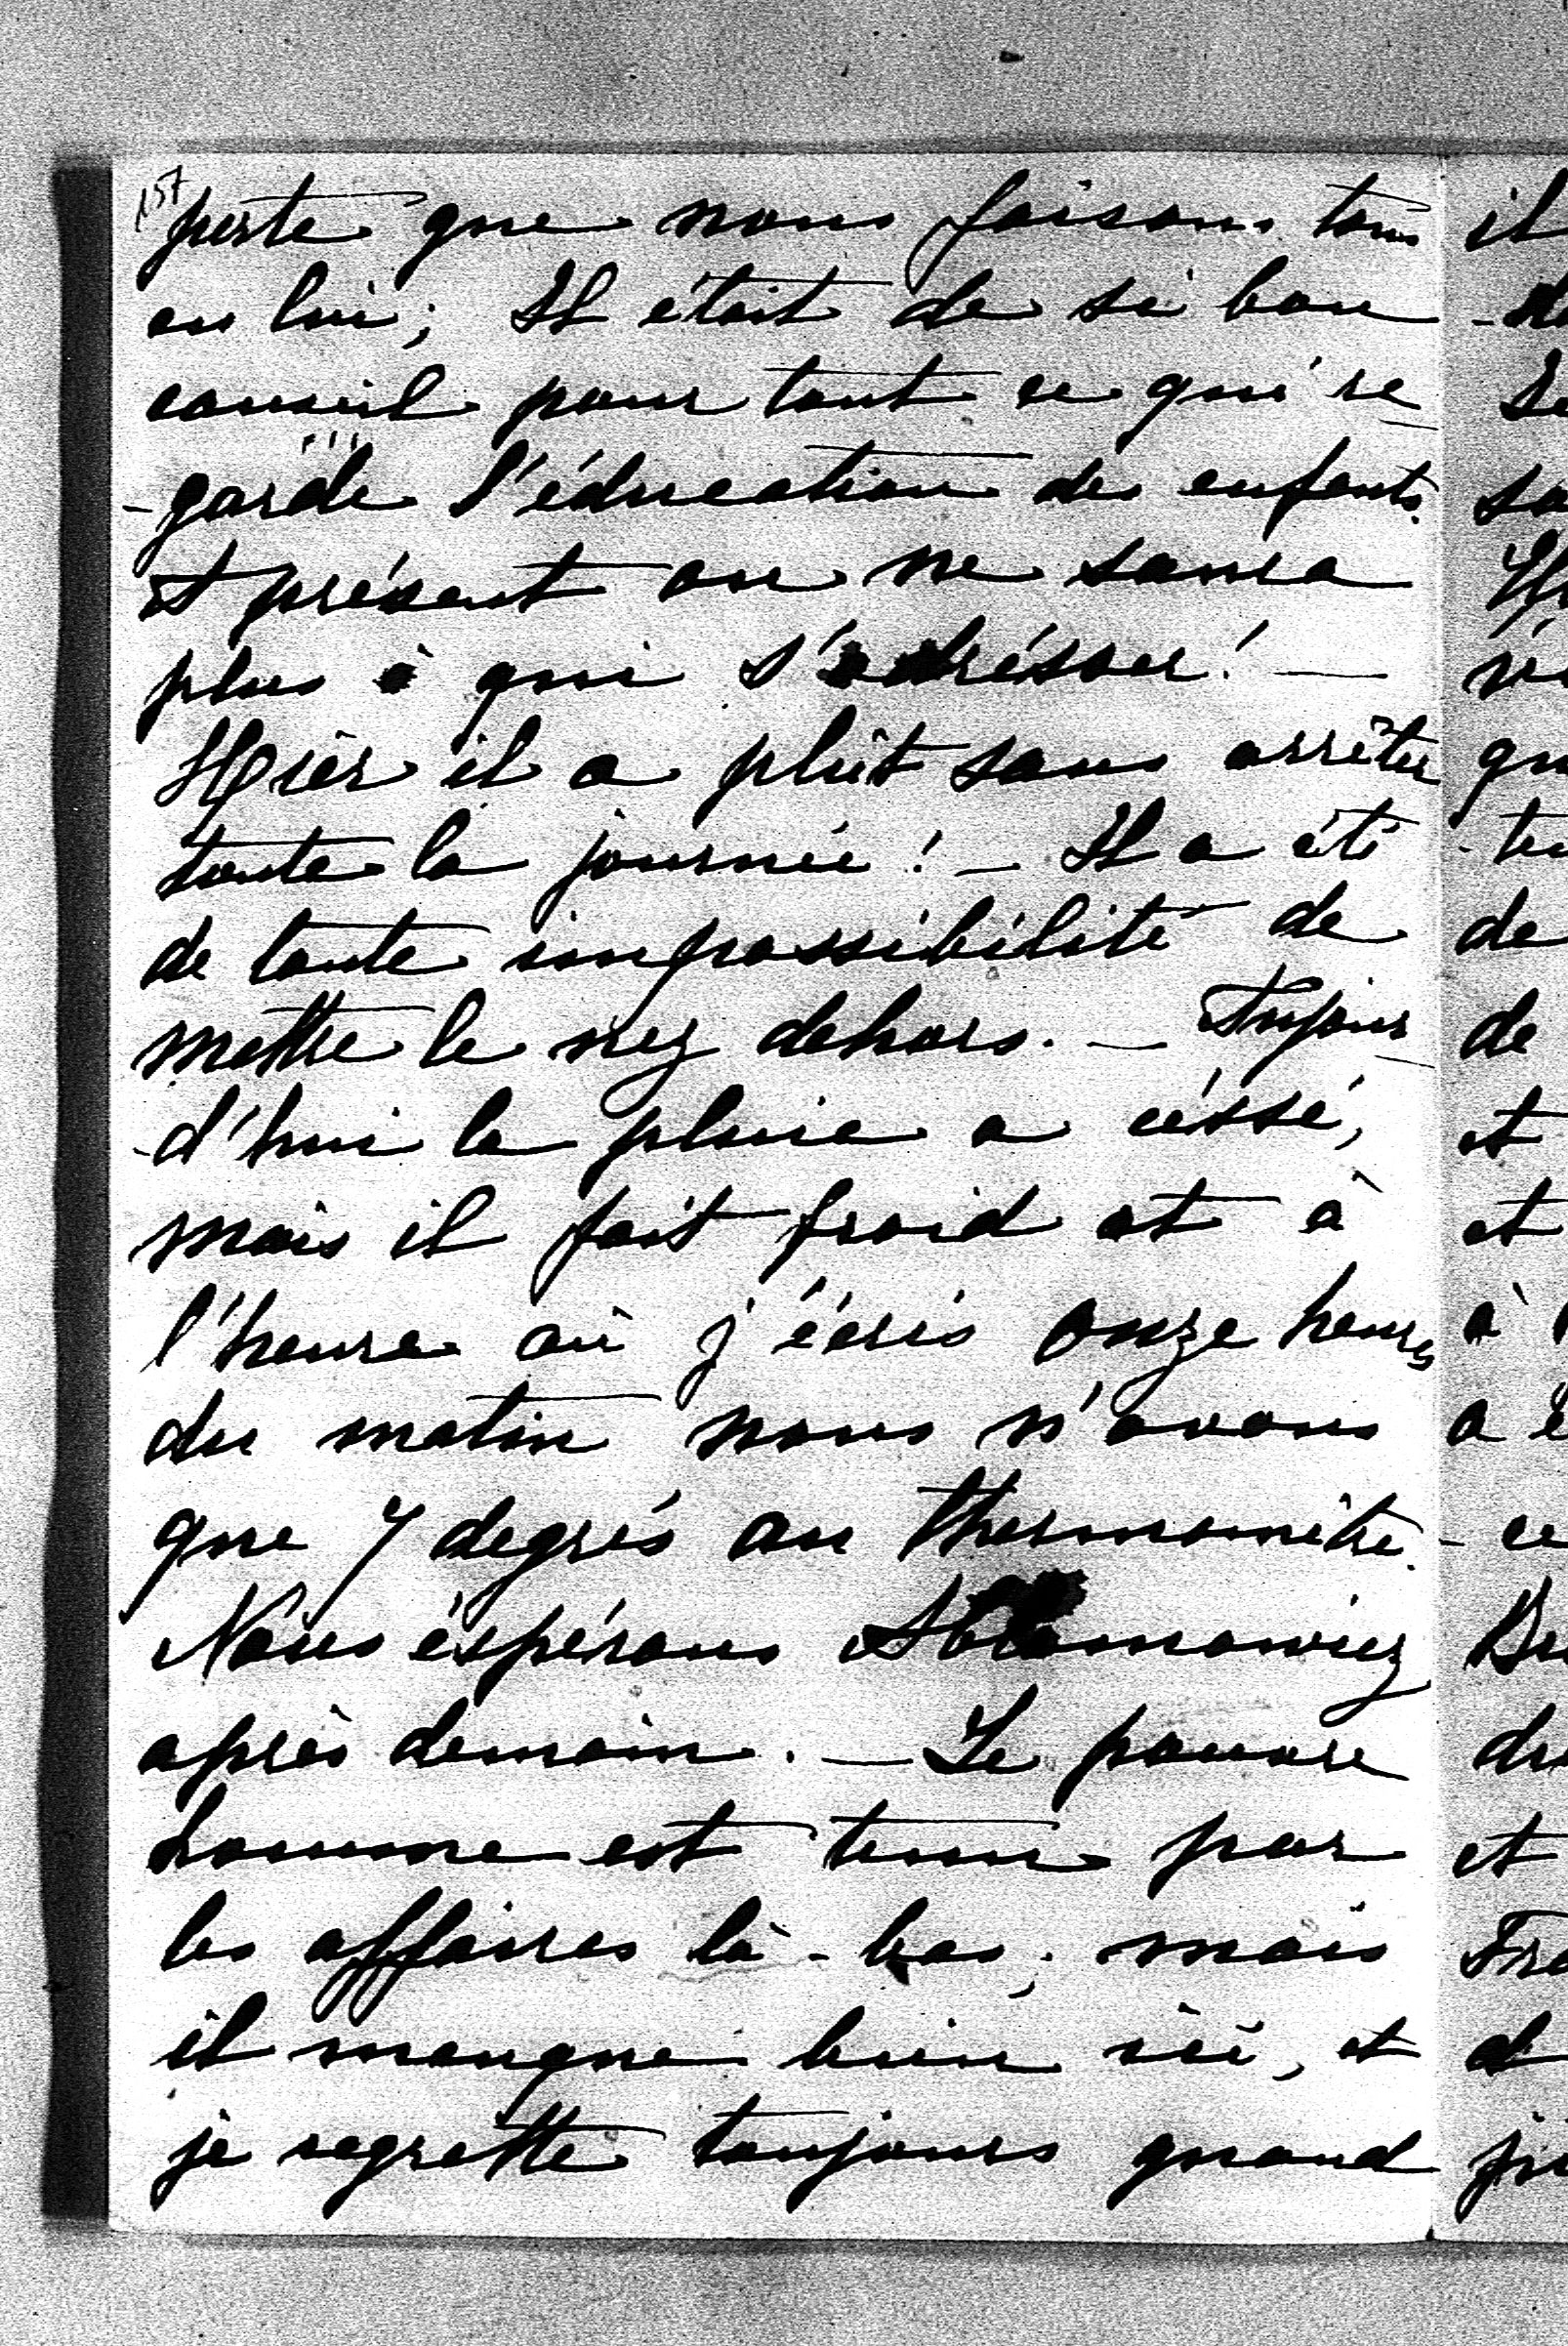 157
perte que nous faisons tous
en lui; Il était de si bon
conseil pour tout ce qui re
-garde l'éducation des enfants.
Et présent on ne saura
plus à qui s'adrésser! —
Hier il a plût sans arrêter
toute la journée! — Il a été
de toute impossibilité de
mettre le nez dehors. — Aujour
-d'hui la pluie a céssé,
mais il fait froid et à
l'heure où j'écris onze heures
du matin nous n'avons
que 7 degrés au thermomètre.
Nous éspérons
après demain. — Le pauvre
homme est tenu par
les affaires là-bas; mais
il manque bien ici, et
je regrette toujours quand